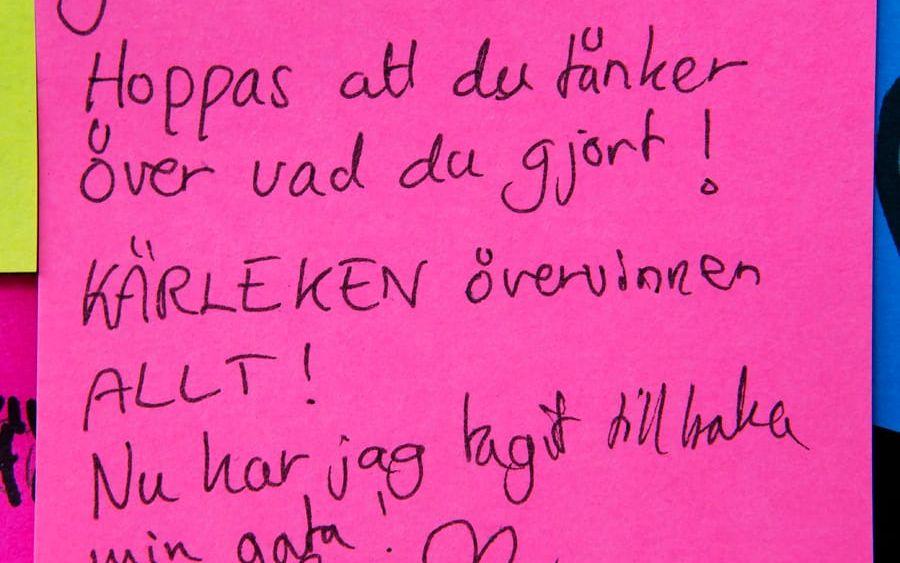 Hoppas att du tänker
över vad du gjort!
KÄRLEKEN övervinner
ALLT!
Nu har jag tagit tillbaka
min gata!